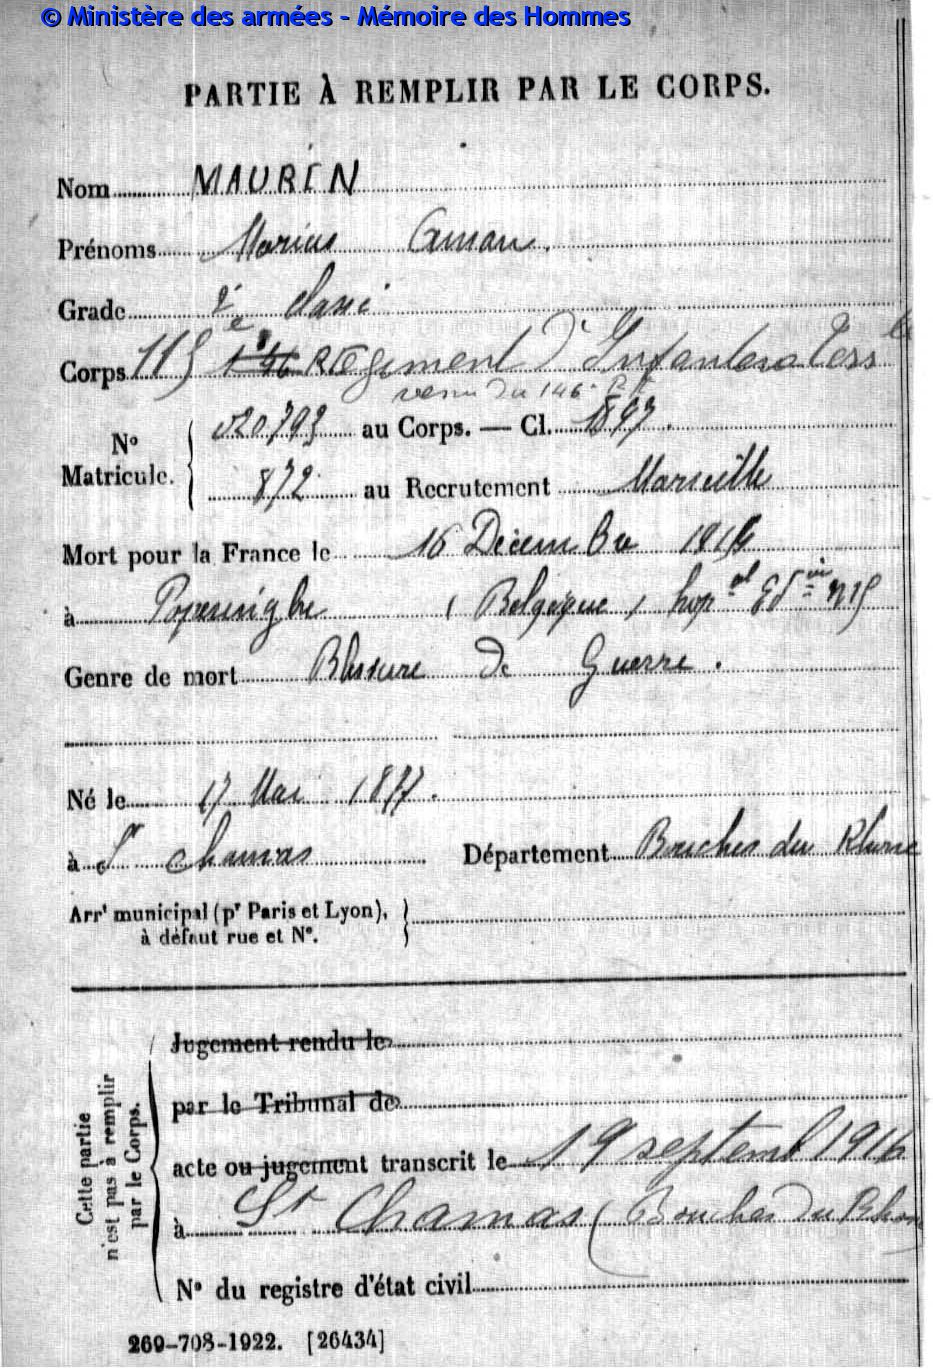 © Ministère des armées - Mémoire des Hommes
PARTIE À REMPLIR PAR LE CORPS.
Nom MAURIN
Prénoms Marius
Grade 2e classe
Corps 115e 146 Régiment d'Infanterie Terrle
venu du 146e R.I.
No
Matricule.
020793 au Corps. — Cl. 1897.
872 au Recrutement Marseille
Mort pour la France le 16 Décembre 1914
à Poperinghe (Belgique) hopal n°5
Genre de mort Blessure de Guerre.
Né le 17 Mai 1877.
à St Chamas Département Bouches du Rhône
Arrt municipal (pr Paris et Lyon),
à défaut rue et No.
Cette partie
n'est pas à remplir
par le Corps.
Jugement rendu le
par le Tribunal de
acte ou jugement transcrit le 19 septemb 1916
à St Chamas (Bouches du Rhon
No du registre d'état civil
269-708-1922. [26434]